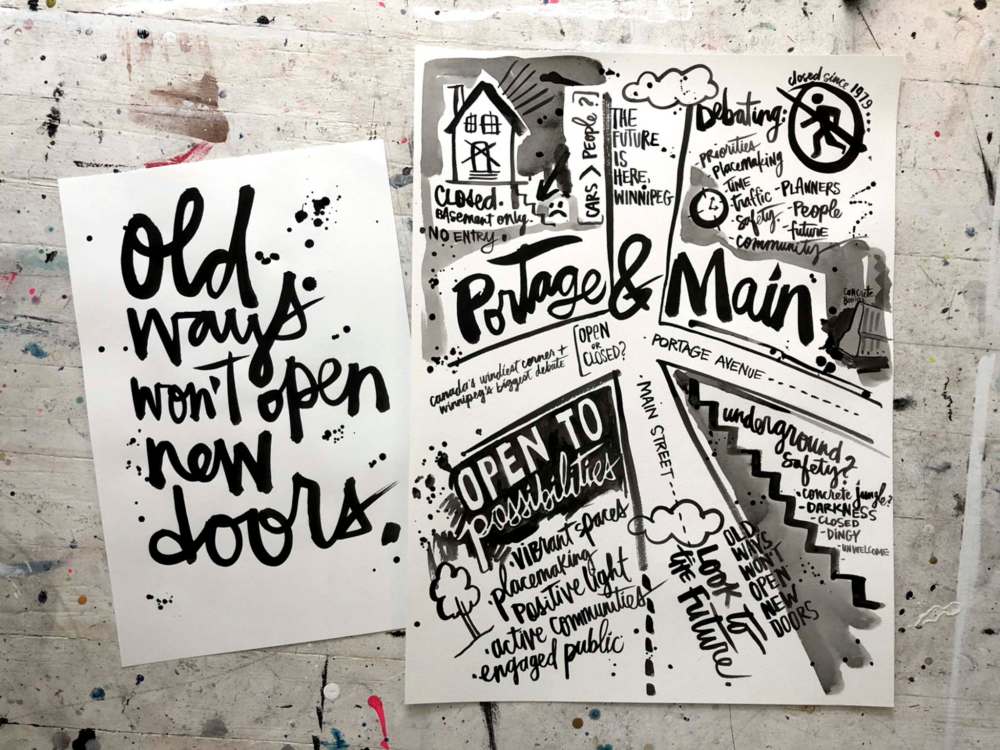 Old
ways
won't open
new
doors.
CLOSED.
BASEMENT ONLY.
NO ENTRY
CARS > PEOPLE?
THE
FUTURE
IS
HERE,
WINNIPEG
closed since 1979
Debating:
-priorities
-placemaking
-TIME
-traffic
-safety.
-community
-PLANNERS
-People
-future
Portage & Main
concrete
canada's windiest corner +
winnipeg's biggest debate
[OPEN
OR
CLOSED?
PORTAGE AVENUE
MAIN STREET
OPEN TO
possibilities
•vibrant spaces
•placemaking
•positive light
•active communities
•engaged public
LOOK TO
the Future
OLD
WAYS
WON'T
OPEN
NEW
DOORS
underground
safety?
-concrete jungle?
-DARKNESS
-CLOSED
-DINGY
-UNWELCOME